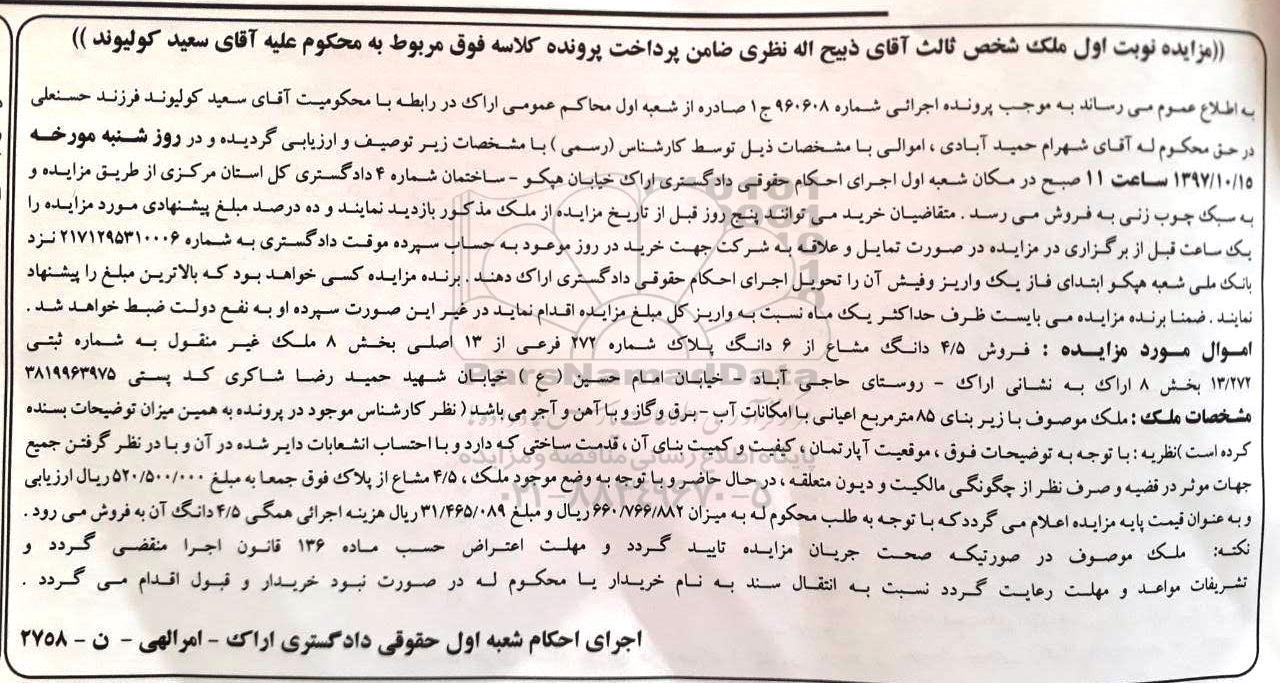 ((مزایده نوبت اول ملک شخص ثالث آقای ذبیح اله نظری ضامن پرداخت پرونده کلاسه فوق مربوط به محکوم علیه آقای سعید کولیوند ))
به اطلاع عموم می رساند به موجب پرونده اجرائی شماره ۹۶۰۶۰۸ ج۱ صادره از شعبه اول محاکم عمومی اراک در رابطه با محکومیت آقای سعید کولیوند فرزند حسنعلی
در حق محکوم له آقای شهرام حمید آبادی ، اموالی با مشخصات ذیل توسط کارشناس (رسمی ) با مشخصات زیر توصیف و ارزیابی گردیده و در روز شنبه مورخه
۱۳۹۷/۱۰/۱۵ ساعت ۱۱ صبح در مکان شعبه اول اجرای احکام حقوقی دادگستری اراک خیابان هپکو - ساختمان شماره ۴ دادگستری کل استان مرکزی از طریق مزایده و
به سبک چوب زنی به فروش می رسد . متقاضیان خرید می توانند پنج روز قبل از تاریخ مزایده از ملک مذکور بازدید نمایند و ده درصد مبلغ پیشنهادی مورد مزایده را
یک ساعت قبل از برگزاری در مزایده در صورت تمایل و علاقه به شرکت جهت خرید در روز موعود به حساب سپرده موقت دادگستری به شماره ۲۱۷۱۲۹۵۳۱۰۰۰۶ نزد
بانک ملی شعبه هپکو ابتدای فاز یک واریز وفیش آن را تحویل اجرای احکام حقوقی دادگستری اراک دهند . برنده مزایده کسی خواهد بود که بالاترین مبلغ را پیشنهاد
نمایند . ضمنا برنده مزایده می بایست ظرف حداکثر یک ماه نسبت به واریز کل مبلغ مزایده اقدام نماید در غیر این صورت سپرده او به نفع دولت ضبط خواهد شد .
اموال مورد مزایده : فروش ۴/۵ دانگ مشاع از ۶ دانگ پلاک شماره ۲۷۲ فرعی از ۱۳ اصلی بخش ۸ ملک غیر منقول به شماره ثبتی
۱۳/۲۷۲ بخش ۸ اراک به نشانی اراک - روستای حاجی آباد - خیابان امام حسین ( ع ) خیابان شهید حمید رضا شاکری کد پستی ۳۸۱۹۹۶۳۹۷۵
مشخصات ملک : ملک موصوف با زیر بنای ۸۵ مترمربع اعیانی با امکانات آب - برق و گاز و با آهن و آجر می باشد ( نظر کارشناس موجود در پرونده به همین میزان توضیحات بسنده
کرده است )نظریه : با توجه به توضیحات فوق ، موقعیت آپارتمان ، کیفیت و کمیت بنای آن ، قدمت ساختی که دارد و با احتساب انشعابات دایر شده در آن و با در نظر گرفتن جمیع
جهات موثر در قضیه و صرف نظر از چگونگی مالکیت و دیون متعلقه ، در حال حاضر و با توجه به وضع موجود ملک ، ۴/۵ مشاع از پلاک فوق جمعا به مبلغ ۵۲۰/۵۰۰/۰۰۰ ریال ارزیابی
و به عنوان قیمت پایه مزایده اعلام می گردد که با توجه به طلب محکوم له به میزان ۶۶۰/۷۶۶/۸۸۲ ریال و مبلغ ۳۱/۴۶۵/۰۸۹ ریال هزینه اجرائی همگی ۴/۵ دانگ آن به فروش می رود .
نکته: ملک موصوف در صورتیکه صحت جریان مزایده تایید گردد و مهلت اعتراض حسب ماده ۱۳۶ قانون اجرا منقضی گردد و
تشریفات مواعد و مهلت رعایت گردد نسبت به انتقال سند به نام خریدار یا محکوم له در صورت نبود خریدار و قبول اقدام می گردد .
اجرای احکام شعبه اول حقوقی دادگستری اراک - امرالهی - ن - ۲۷۵۸
ParsNamadData
پایگاه اطلاع رسانی مناقصه و مزایده
۰۲۱-۸۸۳۴۹۶۷۰-۵